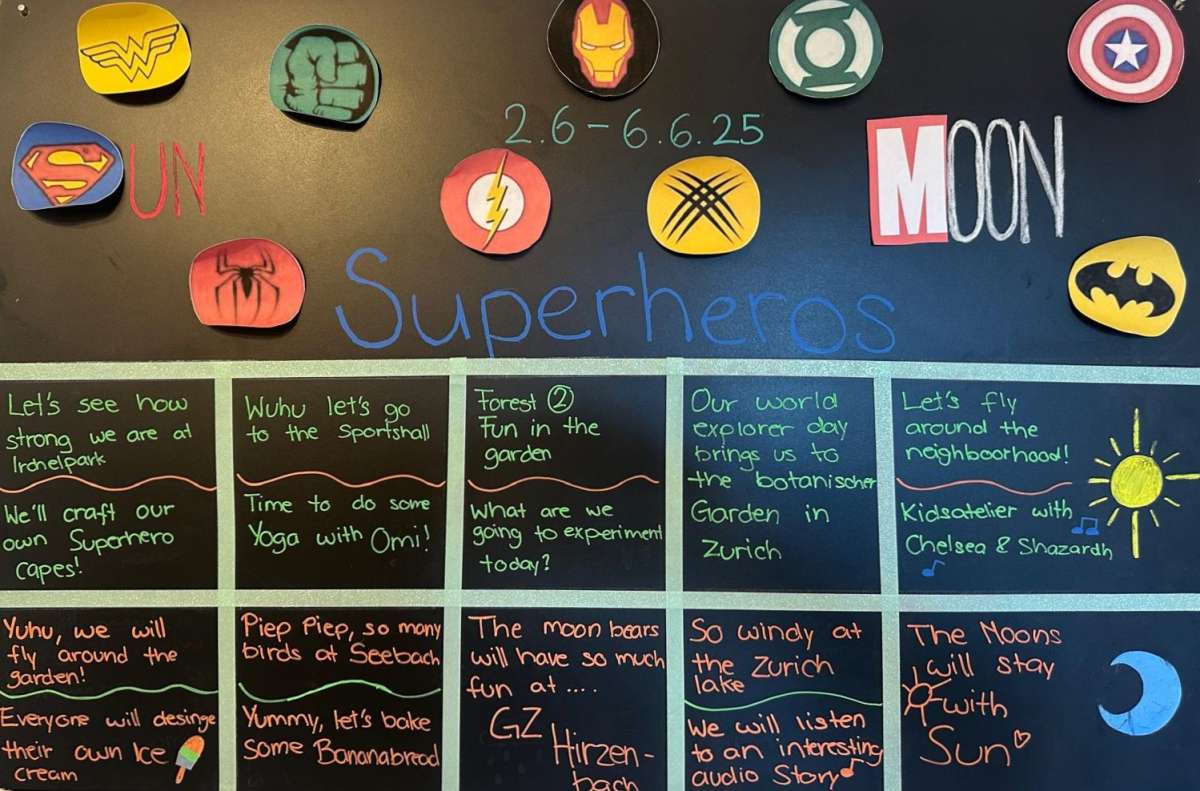 2.6 - 6.6.25
SUN
MOON
Superheros
Let's see how
strong we are at
Irchelpark
We'll craft our
own Superhero
capes!
Wuhu let's go
to the Sportshall
Time to do some
Yoga with Omi!
Forest ②
Fun in the
garden
What are we
going to experiment
today?
Our world
explorer day
brings us to
the botanischer
Garden in
Zurich
Let's fly
around the
neighboorhood!
Kidsatelier with
Chelsea & Shazardh
Yuhu, we will
fly around the
garden!
Everyone will desinge
their own Ice
cream
Piep Piep, so many
birds at Seebach
Yummy, let's bake
some Bananabread
The moon bears
will have so much
fun at ....
GZ
Hirzen-
bach
So windy at
the Zurich
lake
We will listen
to an interesting
audio Story
The Moons
will stay
with
Sun